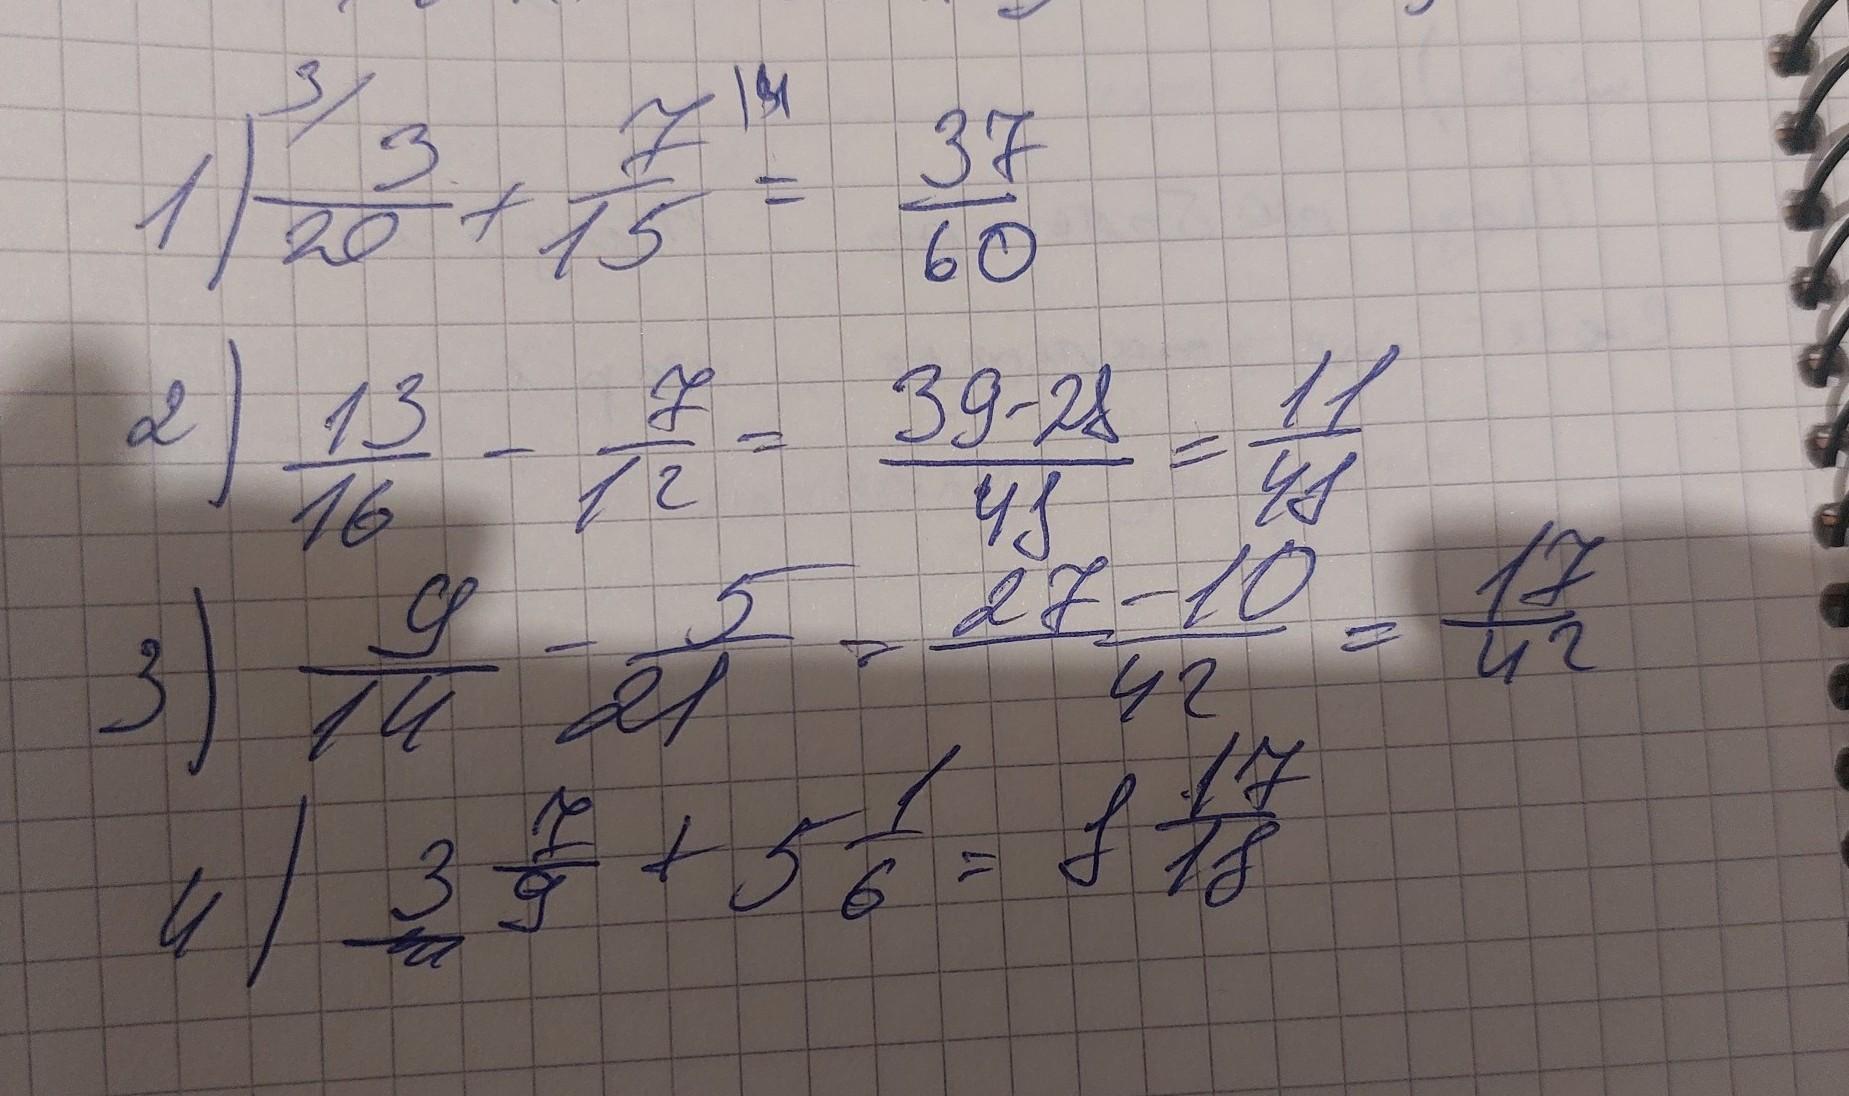 1) 3/ 3/20 + 7/15 |4 = 37/60
2) 13/16 - 7/12 = 39-28/48 = 11/48
3) 9/14 - 5/21 = 27-10/42 = 17/42
4) 3 7/9 + 5 1/6 = 8 17/18